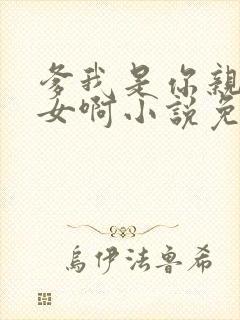 爹我是你親
女啊小說免
烏伊法魯希